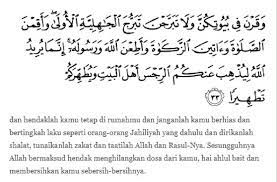 وَقَرْنَ فِي بُيُوتِكُنَّ وَلَا تَبَرَّجْنَ تَبَرُّجَ ٱلْجَٰهِلِيَّةِ ٱلْأُولَىٰ وَأَقِمْنَ
ٱلصَّلَوٰةَ وَءَاتِينَ ٱلزَّكَوٰةَ وَأَطِعْنَ ٱللَّهَ وَرَسُولَهُۥٓ إِنَّمَا يُرِيدُ
ٱللَّهُ لِيُذْهِبَ عَنكُمُ ٱلرِّجْسَ أَهْلَ ٱلْبَيْتِ وَيُطَهِّرَكُمْ
تَطْهِيرًا ٣٣
dan hendaklah kamu tetap di rumahmu dan janganlah kamu berhias dan
bertingkah laku seperti orang-orang Jahiliyah yang dahulu dan dirikanlah
shalat, tunaikanlah zakat dan taatilah Allah dan Rasul-Nya. Sesungguhnya
Allah bermaksud hendak menghilangkan dosa dari kamu, hai ahlul bait dan
membersihkan kamu sebersih-bersihnya.